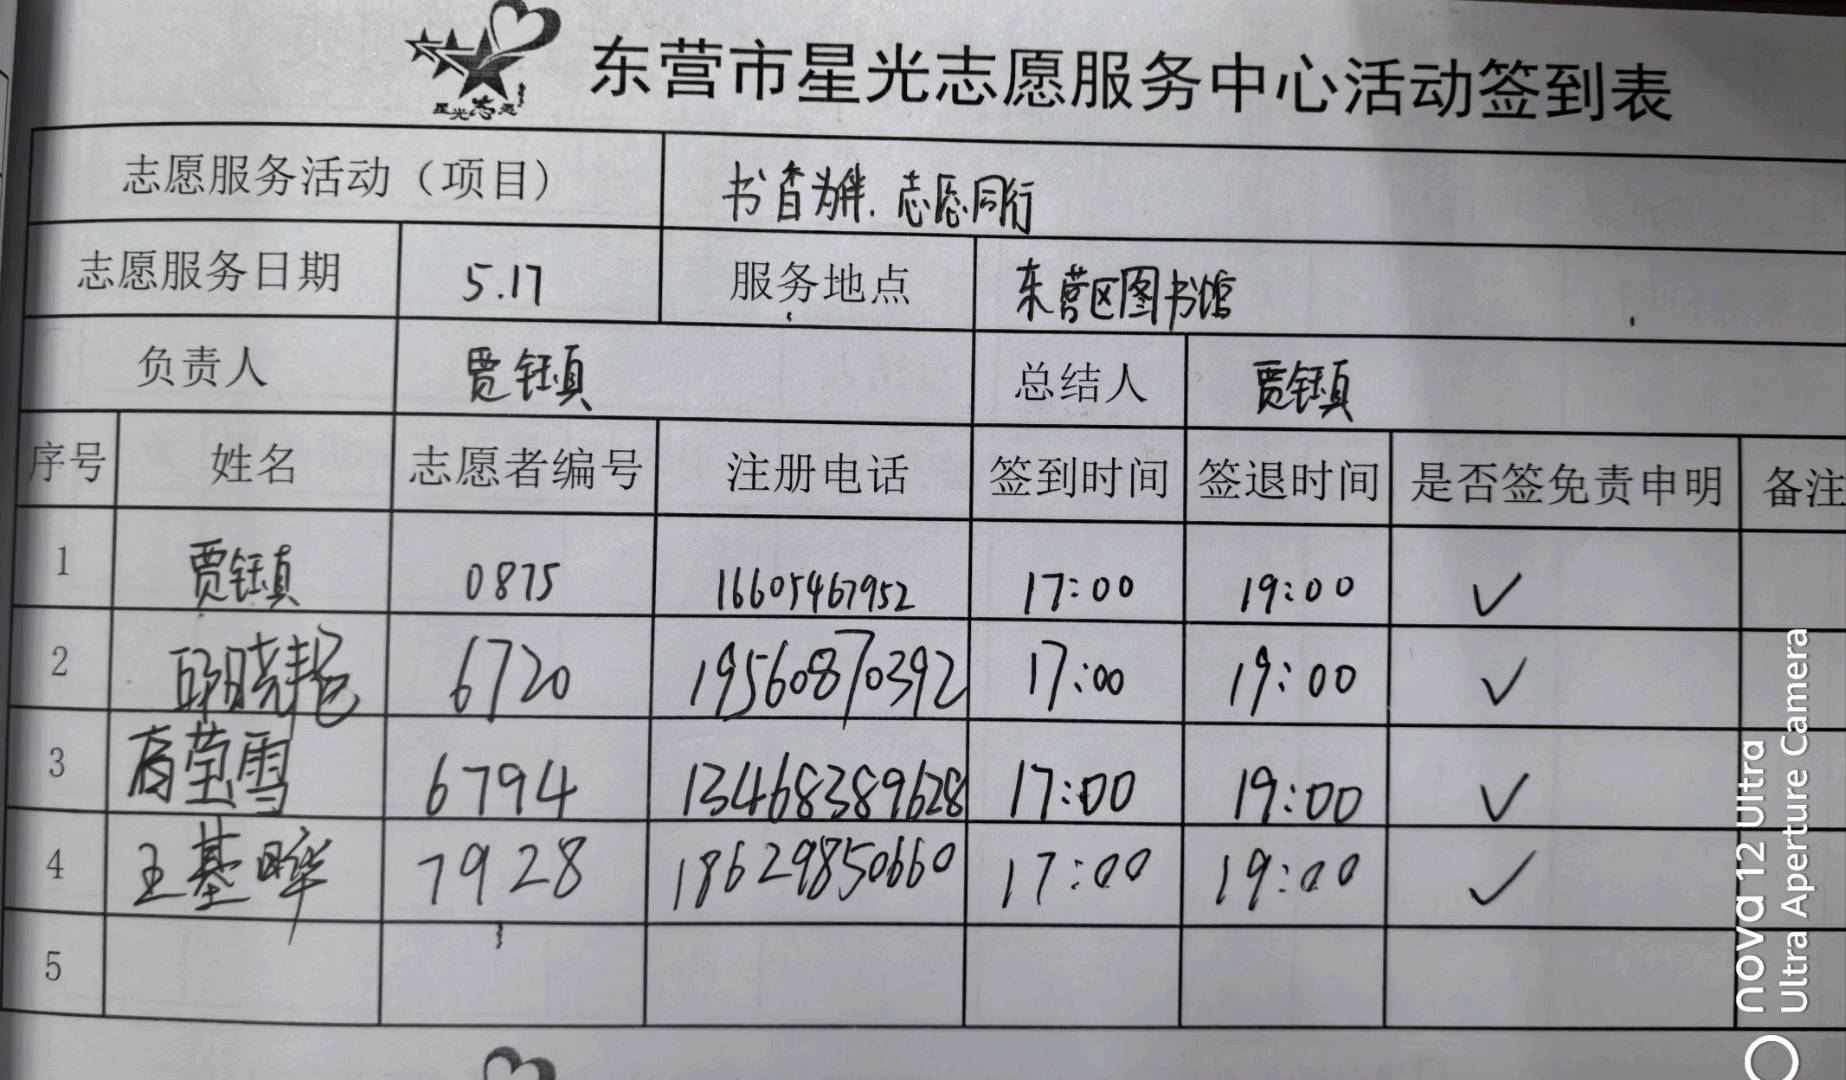 星光志愿
东营市星光志愿服务中心活动签到表
志愿服务活动（项目） 书香为伴.志愿同行
志愿服务日期 5.17 服务地点 东营区图书馆
负责人 贾钰真 总结人 贾钰真
序号 姓名 志愿者编号 注册电话 签到时间 签退时间 是否签免责申明 备注
1 贾钰真 0875 16605467952 17:00 19:00 ✓
2 6720 19560870392 17:00 19:00 ✓
3 高莹雪 6794 13468389628 17:00 19:00 ✓
4 王基晔 7928 18629850660 17:00 19:00 ✓
5
nova 12 Ultra
Ultra Aperture Camera